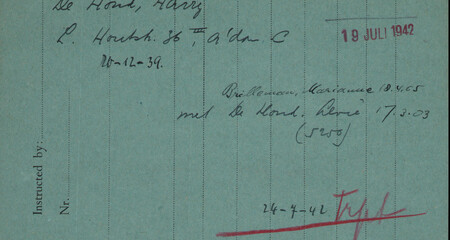 De Hond, Harry
19 JULI 1942
L. Houtstr. 36 III, A'dam C
20-12-39.
Brilleman, Marianne 18.4.05
met De Hond, Levie 17.2.03
(5250)
Instructed by:
Nr.
24-7-42 Trpt